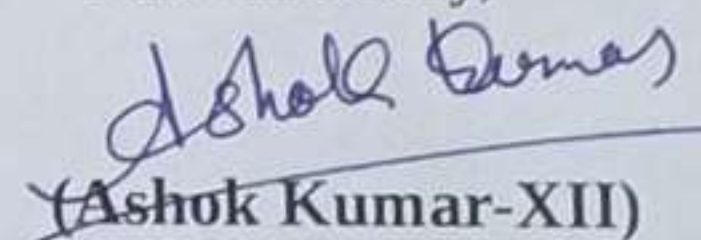 Ashok Kumar
(Ashok Kumar-XII)